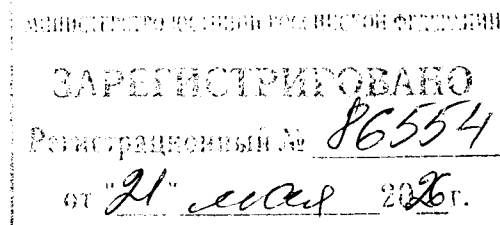 МИНИСТЕРСТВО ЮСТИЦИИ РОССИЙСКОЙ ФЕДЕРАЦИИ
ЗАРЕГИСТРИРОВАНО
Регистрационный № 86554
от "21" мая 2026г.